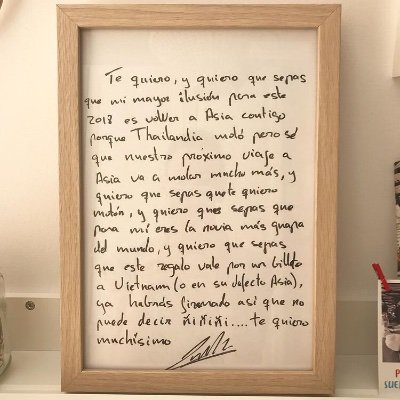 Te quiero, y quiero que sepas
que mi mayor ilusión para este
2018 es volver a Asia contigo
porque Thailandia moló pero sé
que nuestro próximo viaje a
Asia va a molar mucho más, y
quiero que sepas que te quiero
motón, y quiero que sepas que
para mí eres la novia más guapa
del mundo, y quiero que sepas
que este regalo vale por un billete
a Vietnam (o en su defecto Asia),
ya habrás firmado así que no
puede decir ñiñiñi.... te quiero
muchísimo
P
SUE